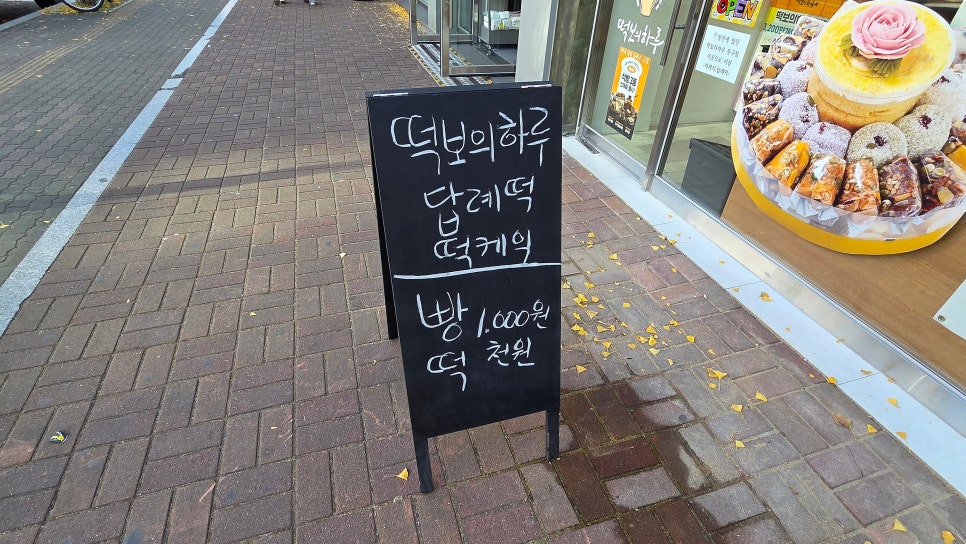 떡보의하루
답례떡
떡케익
빵 1.000원
떡 천원
떡보의하루
OPEN